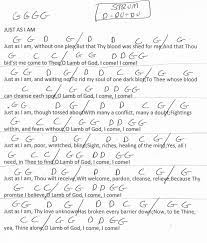 G G G G
STRUM
D-DU-DU
JUST AS I AM
G G D G D D C G G
Just as I am, without one plea, But that Thy blood was shed for me, And that Thou
G C C G G D D G G
bid'st me come to Thee, O Lamb of God, I come! I come!
G G D G D D C G G
Just as I am, and waiting not, To rid my soul of one dark blot, to Thee whose blood
C C G G D D G G
can cleanse each spot, O Lamb of God, I come, I come!
G G D G D D C G G
Just as I am, though tossed about, With many a conflict, many a doubt, Fightings
C C G G D D G G
within, and fears without, O Lamb of God, I come, I come!
G G D G D D C G G
Just as I am, poor, wretched, blind, Sight, riches, healing of the mind, Yes, all I
C C G G D D G G
need, in Thee to find, O Lamb of God, I come, I come!
G G D G D D C G G
Just as I am, Thou wilt receive, Wilt welcome, pardon, cleanse, relieve, Because Thy
C C G G D D G G
promise I believe, O Lamb of God, I come, I come!
G G D G D D C G G
Just as I am, Thy love unknown, Has broken every barrier down, Now, to be Thine,
C C G G D D G G
yea, Thine alone, O Lamb of God, I come, I come!